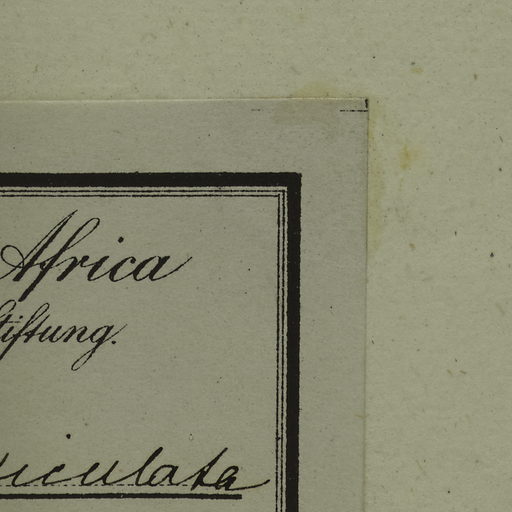 Africa
Stiftung.
iculata